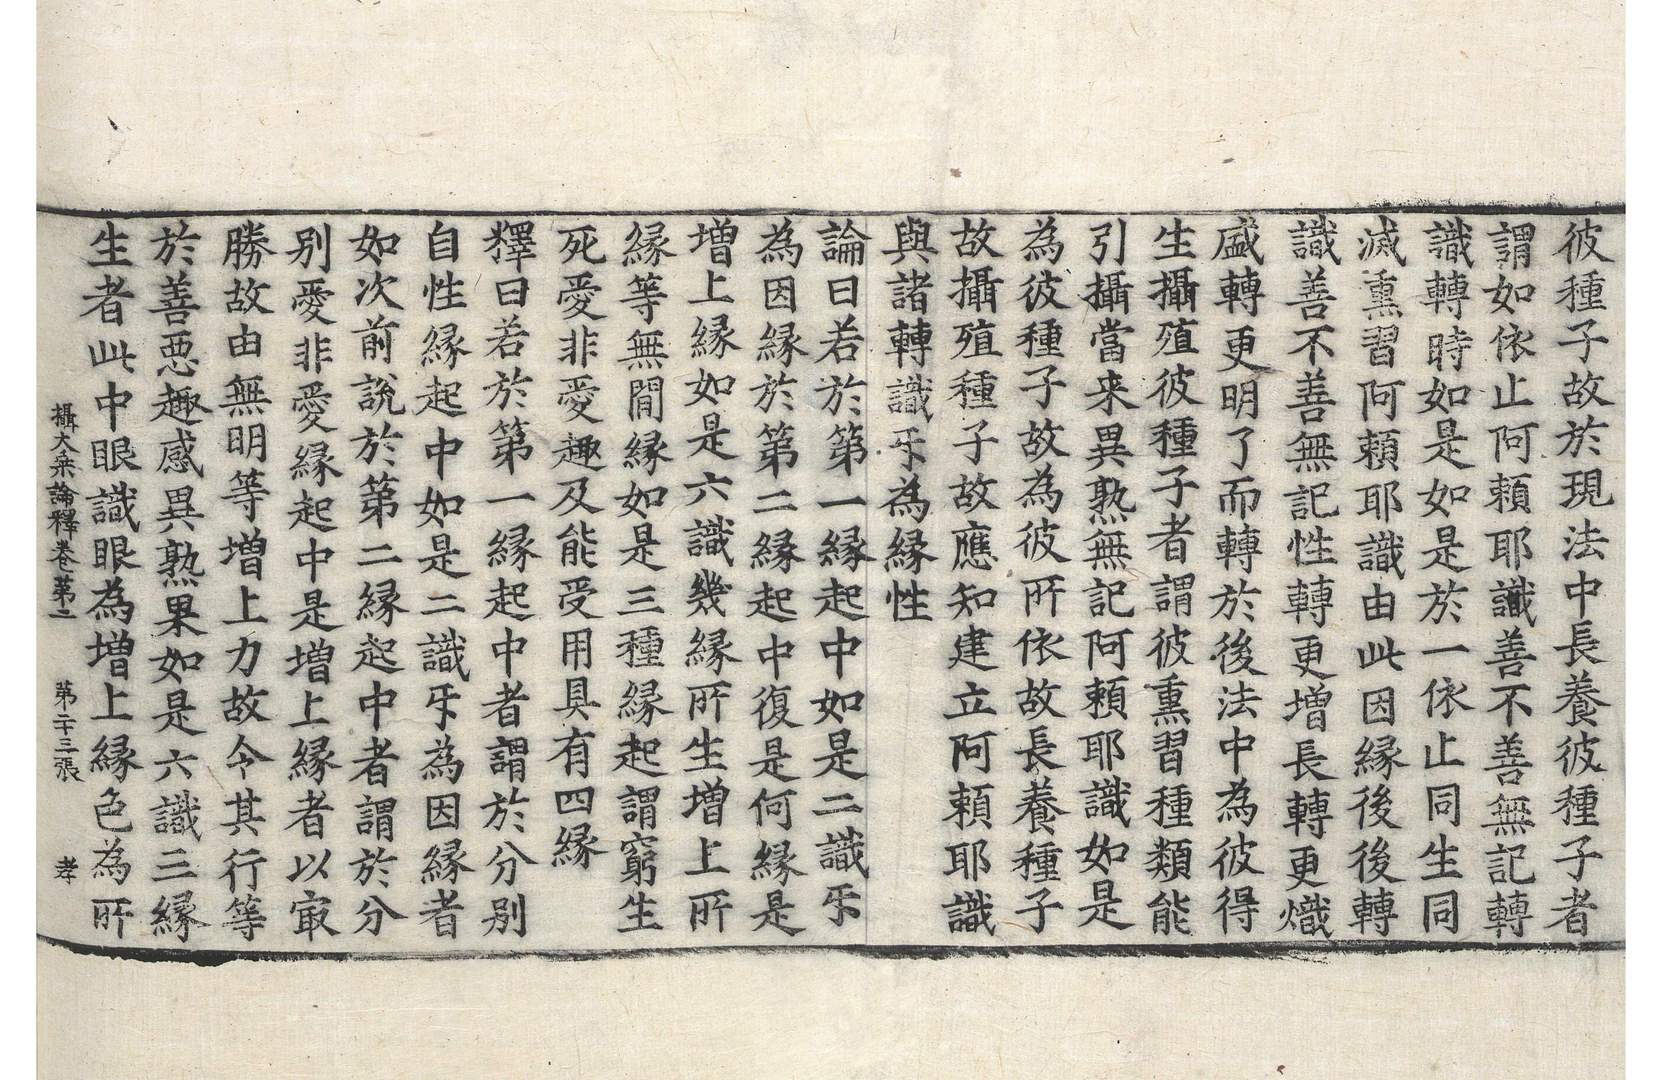 彼種子故於現法中長養彼種子者
謂如依止阿頼耶識善不善無記轉
識轉時如是如是於一依止同生同
滅熏習阿頼耶識由此因縁後後轉
識善不善無記性轉更增長轉更熾
盛轉更明了而轉於後法中為彼得
生攝殖彼種子者謂彼熏習種類能
引攝當来異熟無記阿頼耶識如是
為彼種子故為彼所依故長養種子
故攝殖種子故應知建立阿頼耶識
與諸轉識㸦為縁性
論曰若於第一縁起中如是二識㸦
為因縁於第二縁起中復是何縁是
增上縁如是六識幾縁所生增上所
縁等無間縁如是三種縁起謂窮生
死愛非愛趣及能受用具有四縁
釋曰若於第一縁起中者謂於分別
自性縁起中如是二識㸦為因縁者
如次前說於第二縁起中者謂於分
別愛非愛縁起中是增上縁者以㝡
勝故由無明等增上力故今其行等
於善惡趣感異熟果如是六識三縁
生者此中眼識眼為增上縁色為所
攝大乘論釋卷第二 第二十三張 孝